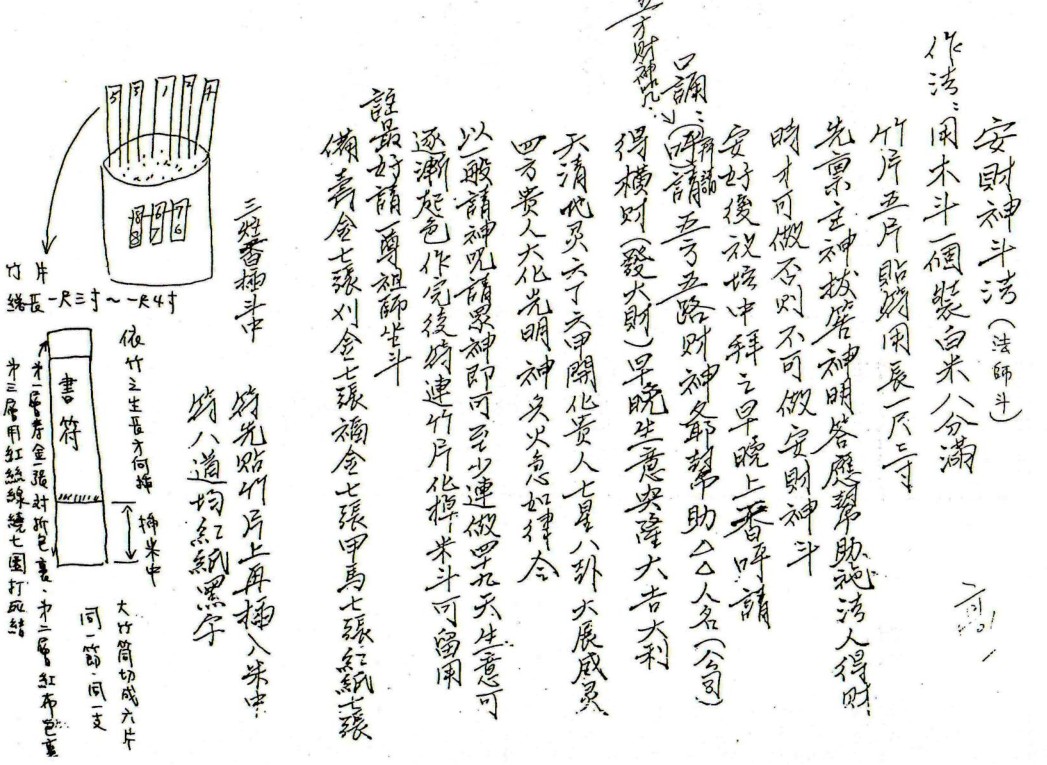 安財神斗法(法師斗)
作法:用木斗一個裝白米八分滿
竹片五片貼符用長一尺三寸
先稟主神拔筶神明答應幫助施法人得財
時才可做否則不可做安財神斗
安好後放塔中拜之早晚上香呼請
五方財神咒
口誦:(呼請五方五路財神爺幫助△△人名(公司)
奔請
得橫財(發大財)早晚生意興隆大吉大利
天清地灵六丁六甲開化贵人七星八卦大展威灵
四方贵人大化光明神兵火急如律令
以一般請神咒請眾神即可至少連做四十九天生意可
逐漸起色作完後符連竹片化掉米斗可留用
註最好請一尊祖師坐斗
備壽金七張刈金七張福金七張甲馬七張紅紙七張
三炷香插斗中
符先貼竹片上再插入米中
符八道均紅紙黑字
5 3 1 2 4
8 6 7
8 7 6
竹片
總長一尺三寸~一尺4寸
依竹之生長方向插
書符
插米中
大竹筒切成六片
同一節.同一支
第一層壽金一張对折包裹.第二層紅布包裹
第三層用紅絲線繞七圈打死結